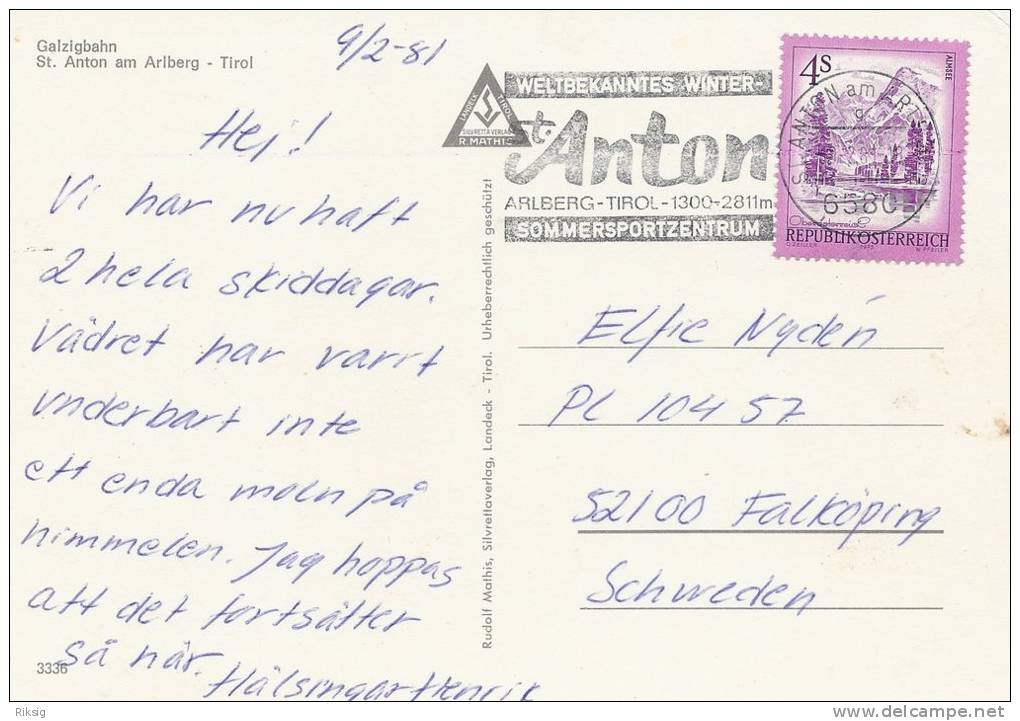 Galzigbahn
St. Anton am Arlberg - Tirol
9/2-81
Hej!
Vi har nu haft
2 hela skiddagar.
Vädret har varit
underbart inte
ett enda moln på
himmelen. Jag hoppas
att det fortsätter
så här.
Hälsingar Henrik
3336
Rudolf Mathis, Silvrettaverlag, Landeck - Tirol. Urheberrechtlich geschützt
LANDECK TIROL
SILVRETTA VERLAG
R. MATHIS
WELTBEKANNTES WINTER-
St. Anton
ARLBERG-TIROL-1300-2811m
SOMMERSPORTZENTRUM
ST. ANTON am ARL
6580
4S
ALMSEE
Oberösterreich
REPUBLIK ÖSTERREICH
Elfie Nydén
PL 104 57
52100 Falköping
Schweden
Riksig
delcampe.net